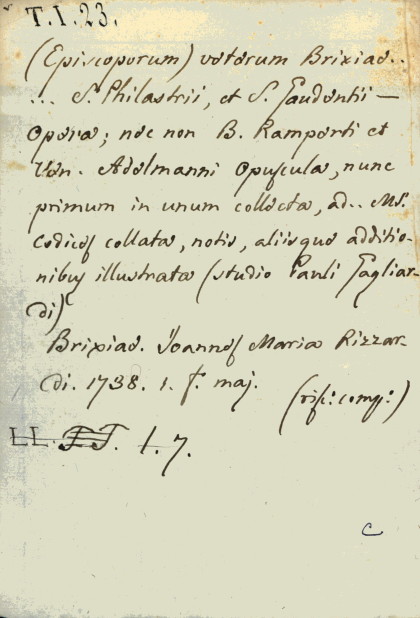 T.I.23.
(Episcoporum) veterum Brixiae..
... S. Philastrii, et S. Gaudentii —
Opera; nec non B. Ramperti et
Ven. Adelmanni Opuscula, nunc
primum in unum collecta, ad.. Ms.
Codices collata, notis, aliisque additio-
nibus illustrata (studio Pauli Gagliar-
di)
Brixiae. Joannes Maria Rizzar-
di. 1738. 1. f. maj.
(ris: comp:)
LL. FF. 1.7.
C